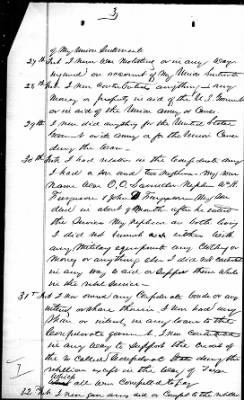 3
of my Union Sentiments
27th Int I never was molested or in any way
injured on account of my Union Sentiments
28th Int I never contributed anything — any
money or property in aid of the U.S. Government
or in aid of the Union Army or Cause
29th Int I never did anything for the United States
Government or its army or for the Union Cause
during the War —
30th Int I had relation in the Confederate army
I had a Son and two Nephews — My Son
Name was O.O. Nephew W.
Ferguson & John Ferguson — My Son
died in about 9 months after he entered
the Service My Nephews are both living
I did not furnish either with
any Military equipments any Clothing or
Money or anything else I did not contribute
in any way to aid or support them while
in the rebel Service —
31st Int I never owned any Confederate Bonds or any
interest or share therein I never had any
Share or interest in any loan to the
Confederate government I never contributed
in any way to support the credit of
the so called Confederate States during the
rebellion except in the way of Taxes
which all were Compelled to pay
32 Int I never gave any aid or Comfort to the rebellion